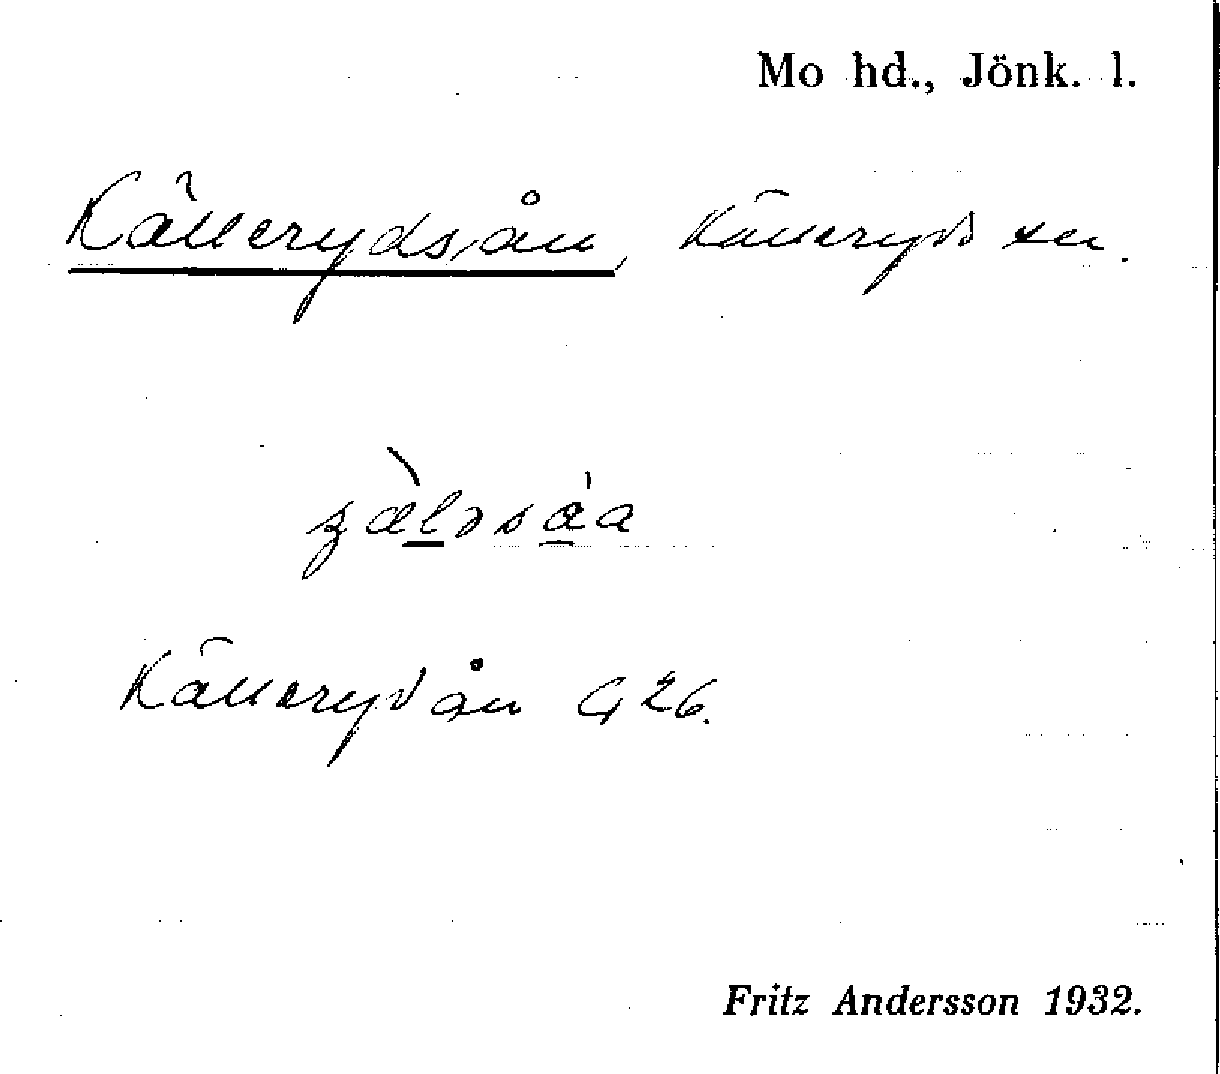 Mo hd., Jönk. l.
Källerydsån, Källeryds sn.
Källeryd ån G 26.
Fritz Andersson 1932.